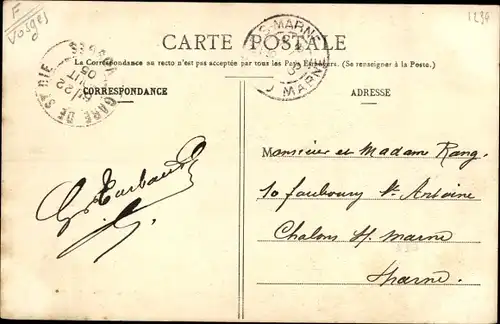 F
Vosges
1234
CARTE POSTALE
La Correspondance au recto n'est pas acceptée par tous les Pays Étrangers. (Se renseigner à la Poste.)
GARE DE ST DIE
VOSGES
22
05
S-MARNE
MARNE
CORRESPONDANCE
ADRESSE
Monsieur et Madam Rang.
10 faubourg St Antoine
Chalons s/ Marne
Marne.